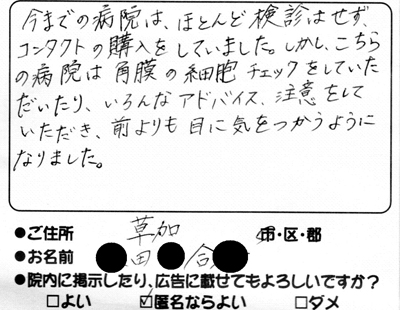 今までの病院は、ほとんど検診はせず、
コンタクトの購入をしていました。しかし、こちら
の病院は角膜の細胞チェックをしていた
だいたり、いろんなアドバイス、注意をして
いただき、前よりも目に気をつかうように
なりました。
●ご住所 草加 市・区・郡
●お名前 田 合
●院内に掲示したり、広告に載せてもよろしいですか?
□よい ☑匿名ならよい □ダメ